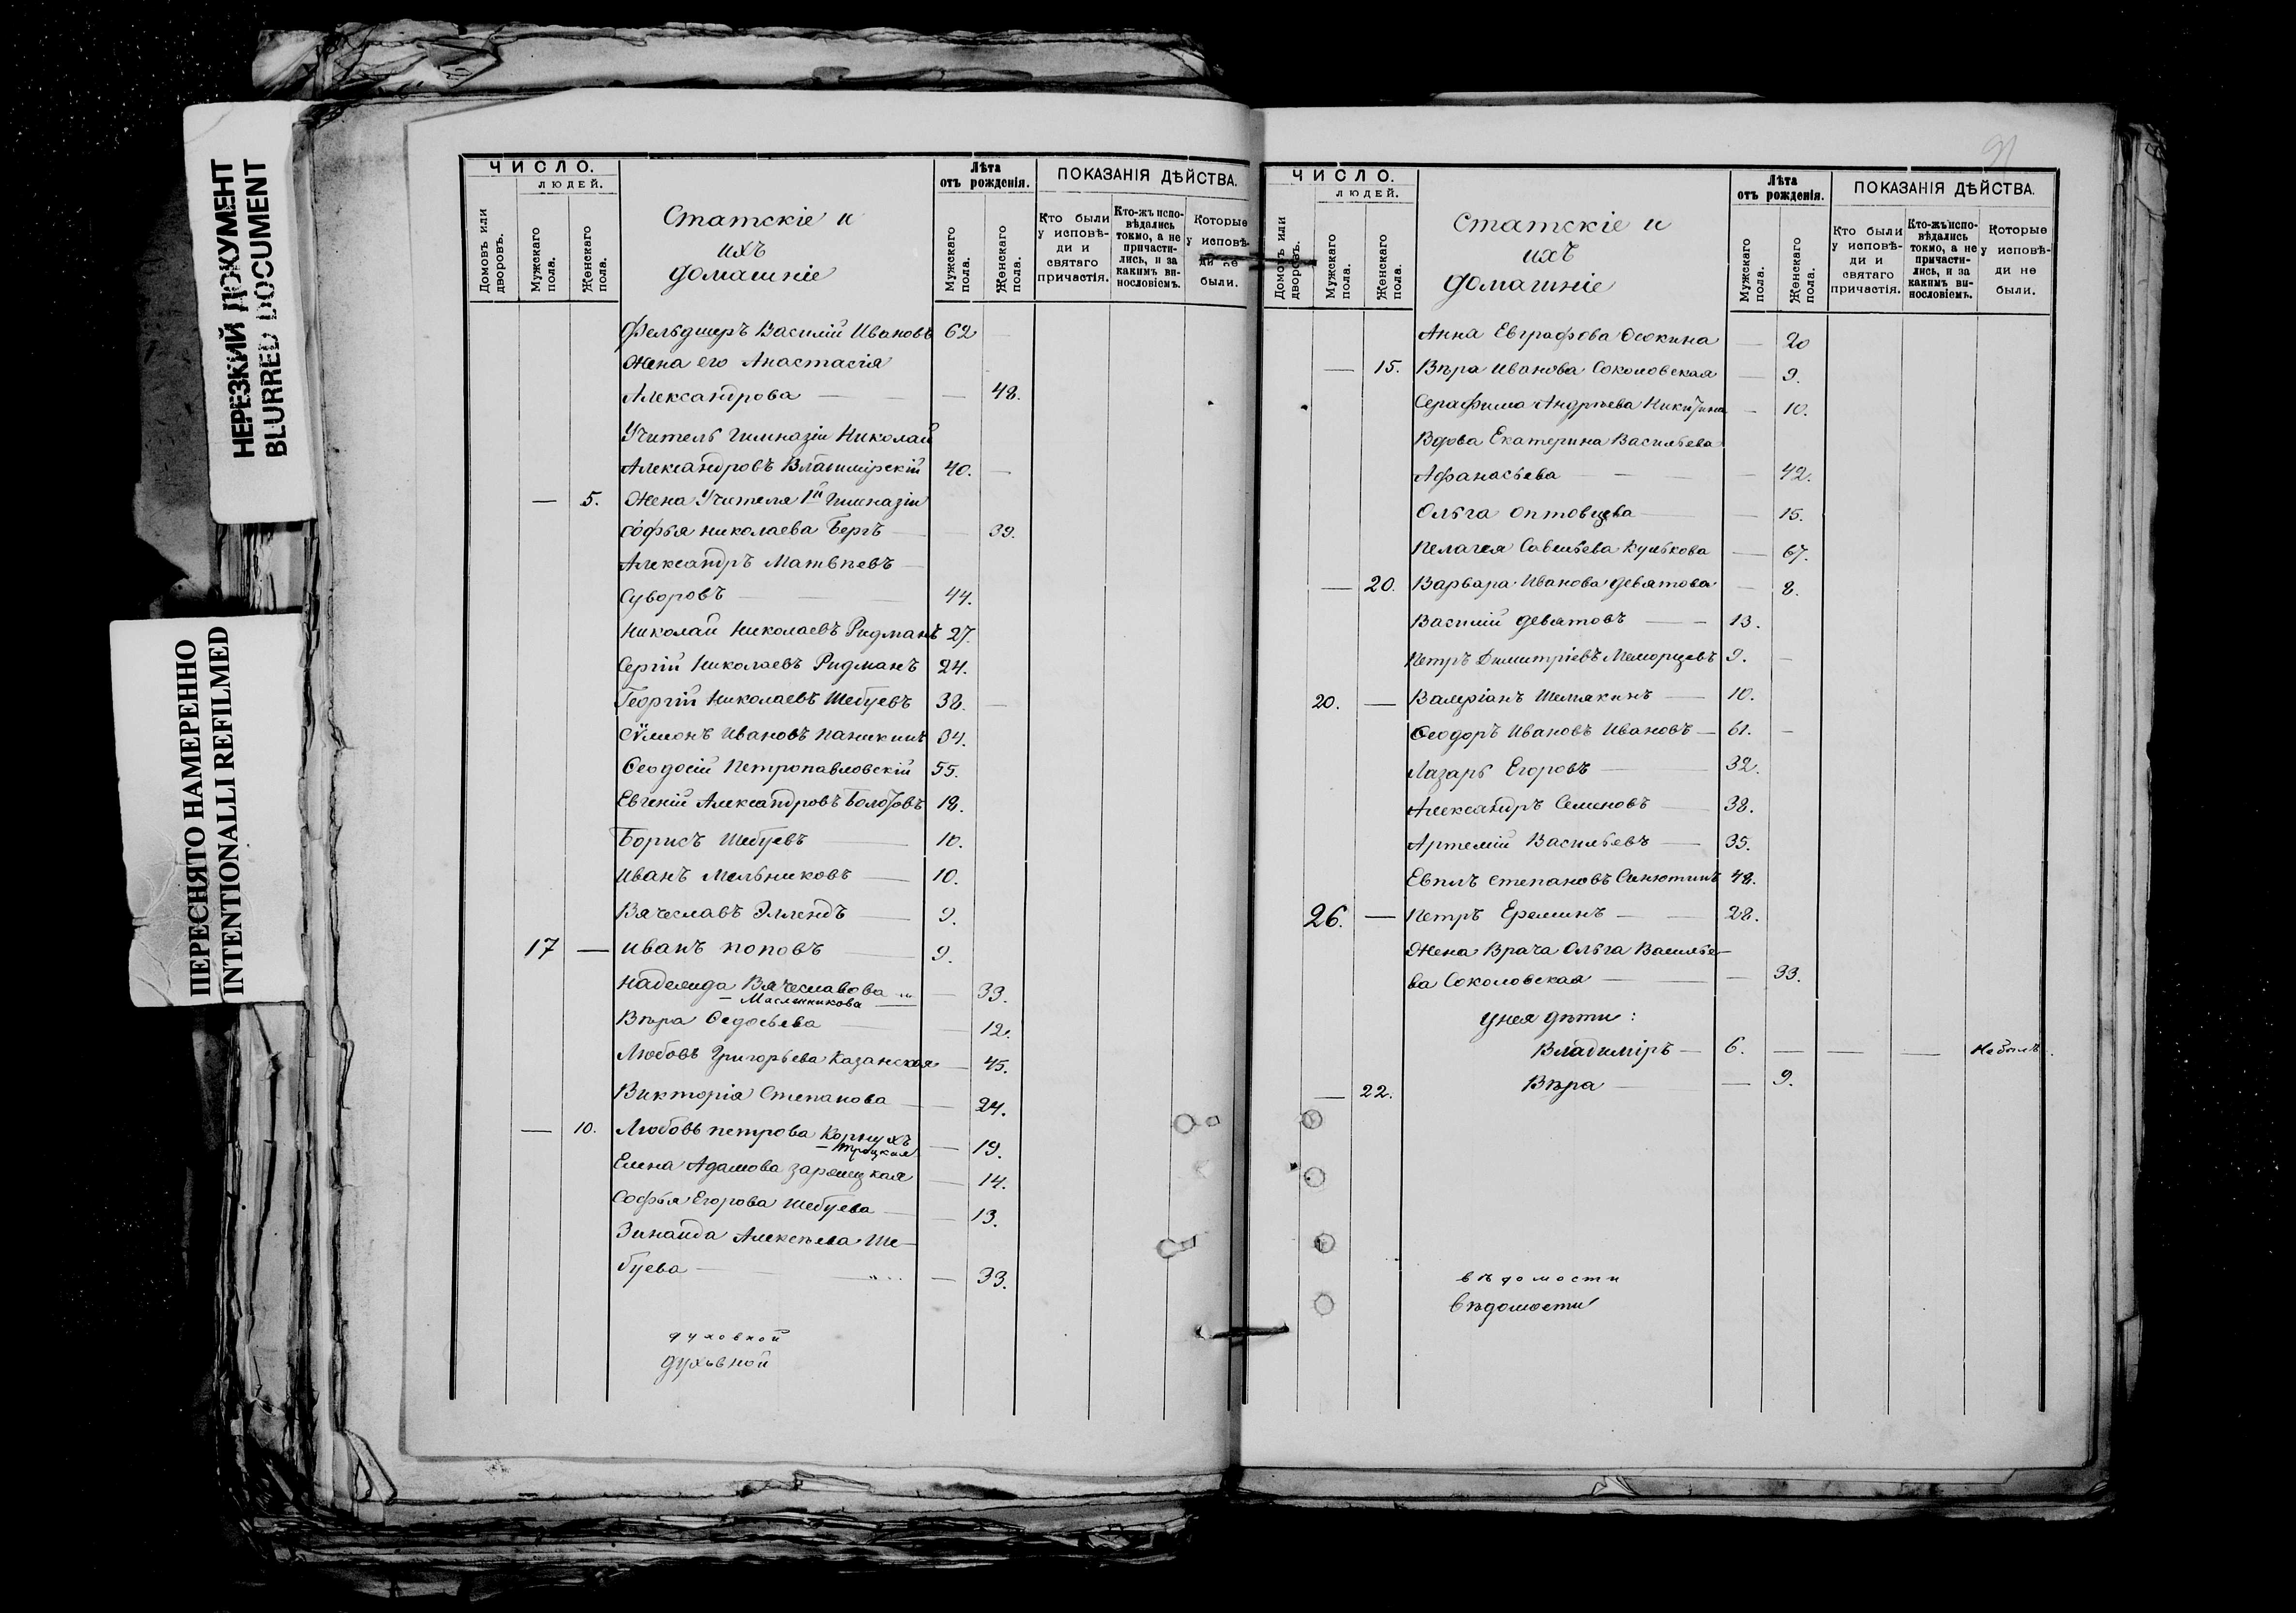 НЕРЕЗКИЙ ДОКУМЕНТ
BLURRED DOCUMENT
ПЕРЕСНЯТО НАМЕРЕННО
INTENTIONALLI REFILMED
ЧИСЛО.
ЛЮДЕЙ.
Домовъ или дворовъ.
Мужскаго пола.
Женскаго пола.
Статскіе и
ихъ
домашніе
Лѣта
отъ рожденія.
Мужскаго пола.
Женскаго пола.
ПОКАЗАНІЯ ДѢЙСТВА.
Кто были
у исповѣ-
ди и
святаго
причастія.
Кто-жъ испо-
вѣдались
токмо, а не
причасти-
лись, и за
какимъ ви-
нословіемъ.
Которые
у исповѣ-
ди не
были.
Фельдшеръ Василій Ивановъ 62
Жена его Анастасія
Александрова — — 48.
Учитель Гимназіи Николай
Александровъ Владимірскій 40. —
— 5. Жена Учителя 1й Гимназіи
Софья Николаева Бергъ — — 39.
Александръ Матвѣевъ —
Суворовъ — 44.
Николай Николаевъ Ридманъ 27.
Сергій Николаевъ Ридманъ 24.
Георгій Николаевъ Шебуевъ 38. —
Сѵмеонъ Ивановъ Паникинъ 34.
Ѳеодосій Петропавловскій 55.
Евгеній Александровъ Болотовъ 18.
Борисъ Шебуевъ — 10.
Иванъ Мельниковъ — 10.
Вячеславъ Эллендъ — 9.
17 — Иванъ Поповъ — 9.
Надежда Вячеславова — 33.
— Масленникова —
Вѣра Ѳедосѣева — — 12.
Любовь Григорьева Казанская — 45.
Викторія Степанова — — 24.
— 10. Любовь Петрова Корнухъ — 19.
— Троцкая
Елена Адамова Зарѣцкая — 14.
Софья Егорова Шебуева — — 13.
Зинаида Алексѣева Ше-
буева — — 33.
духовной
духовной
91
ЧИСЛО.
ЛЮДЕЙ.
Домовъ или дворовъ.
Мужскаго пола.
Женскаго пола.
Статскіе и
ихъ
домашніе
Лѣта
отъ рожденія.
Мужскаго пола.
Женскаго пола.
ПОКАЗАНІЯ ДѢЙСТВА.
Кто были
у исповѣ-
ди и
святаго
причастія.
Кто-жъ испо-
вѣдались
токмо, а не
причасти-
лись, и за
какимъ ви-
нословіемъ.
Которые
у исповѣ-
ди не
были.
Анна Евграфова Осокина — 20
— 15. Вѣра Иванова Соколовская — 9.
Серафима Андреева Никитина — 10.
Вдова Екатерина Васильева
Афанасьева — — 42.
Ольга Оптовцева — — 15.
Пелагея Савельева Кулькова — 67.
— 20. Варвара Иванова Девятова — 8.
Василій Девятовъ — 13.
Петръ Димитріевъ 9. —
20. — Валеріанъ Шемякинъ — 10.
Ѳеодоръ Ивановъ Ивановъ — 61. —
Лазарь Егоровъ — 32.
Александръ Семеновъ — 38.
Артемій Васильевъ — 35.
Евплъ Степановъ Синютинъ 48.
26. — Петръ Ереминъ — 28.
Жена Врача Ольга Василье-
ва Соколовская — — 33.
У нея дѣти:
Владиміръ — 6. — — — Не былъ.
— 22. Вѣра — — 9.
вѣдомости
вѣдомости